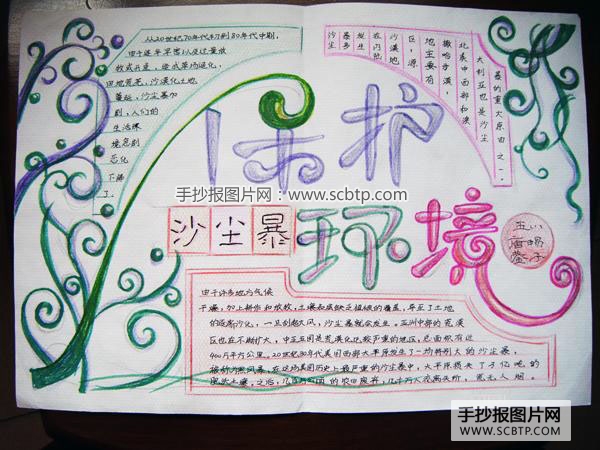 从20世纪70年代初到80年代中期，
由于连年旱灾以及过量放
牧式开垦，造成草场退化，
田地荒芜，沙漠化土地
蔓延，沙尘暴加
剧，人们的
生活环
境急剧
恶化
下降
了。
沙尘
暴多
发生
在内陆
沙漠地
区，源
地主要有
撒哈拉沙漠，
北美中西部和澳
大利亚也是沙尘
暴的重大原因之一。
保护
手抄报图片网：www.scbtp.com
沙尘暴
环境
五八
由于许多地方气候
干燥，加上耕作和放牧，土壤和底缺乏植被的覆盖，导至了土地
的逐渐沙化，一旦刮起大风，沙尘暴就会发生，亚洲中部的荒漠
区也在不断扩大，中亚五国是荒漠化比较严重的地区，总面积有近
400万平方公里。20世纪30年代美国西部大平原发生了一场特别大的沙尘暴，
被称为黑风暴，在这场美国历史上最严重的沙尘暴中，大平原损失了3亿吨的
肥沃土壤，之后，几百万公亩的农田废弃，几十万人流离失所，荒无人烟。
手抄报图片网
WWW.SCBTP.COM